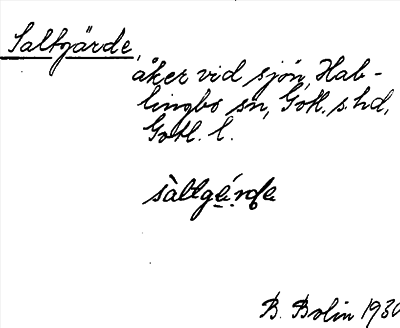 Saltgärde,
åker vid sjön, Hab-
lingbo sn, Gotl. s. hd,
Gotl. l.
sàltgǽrde
B. Bolin 1930